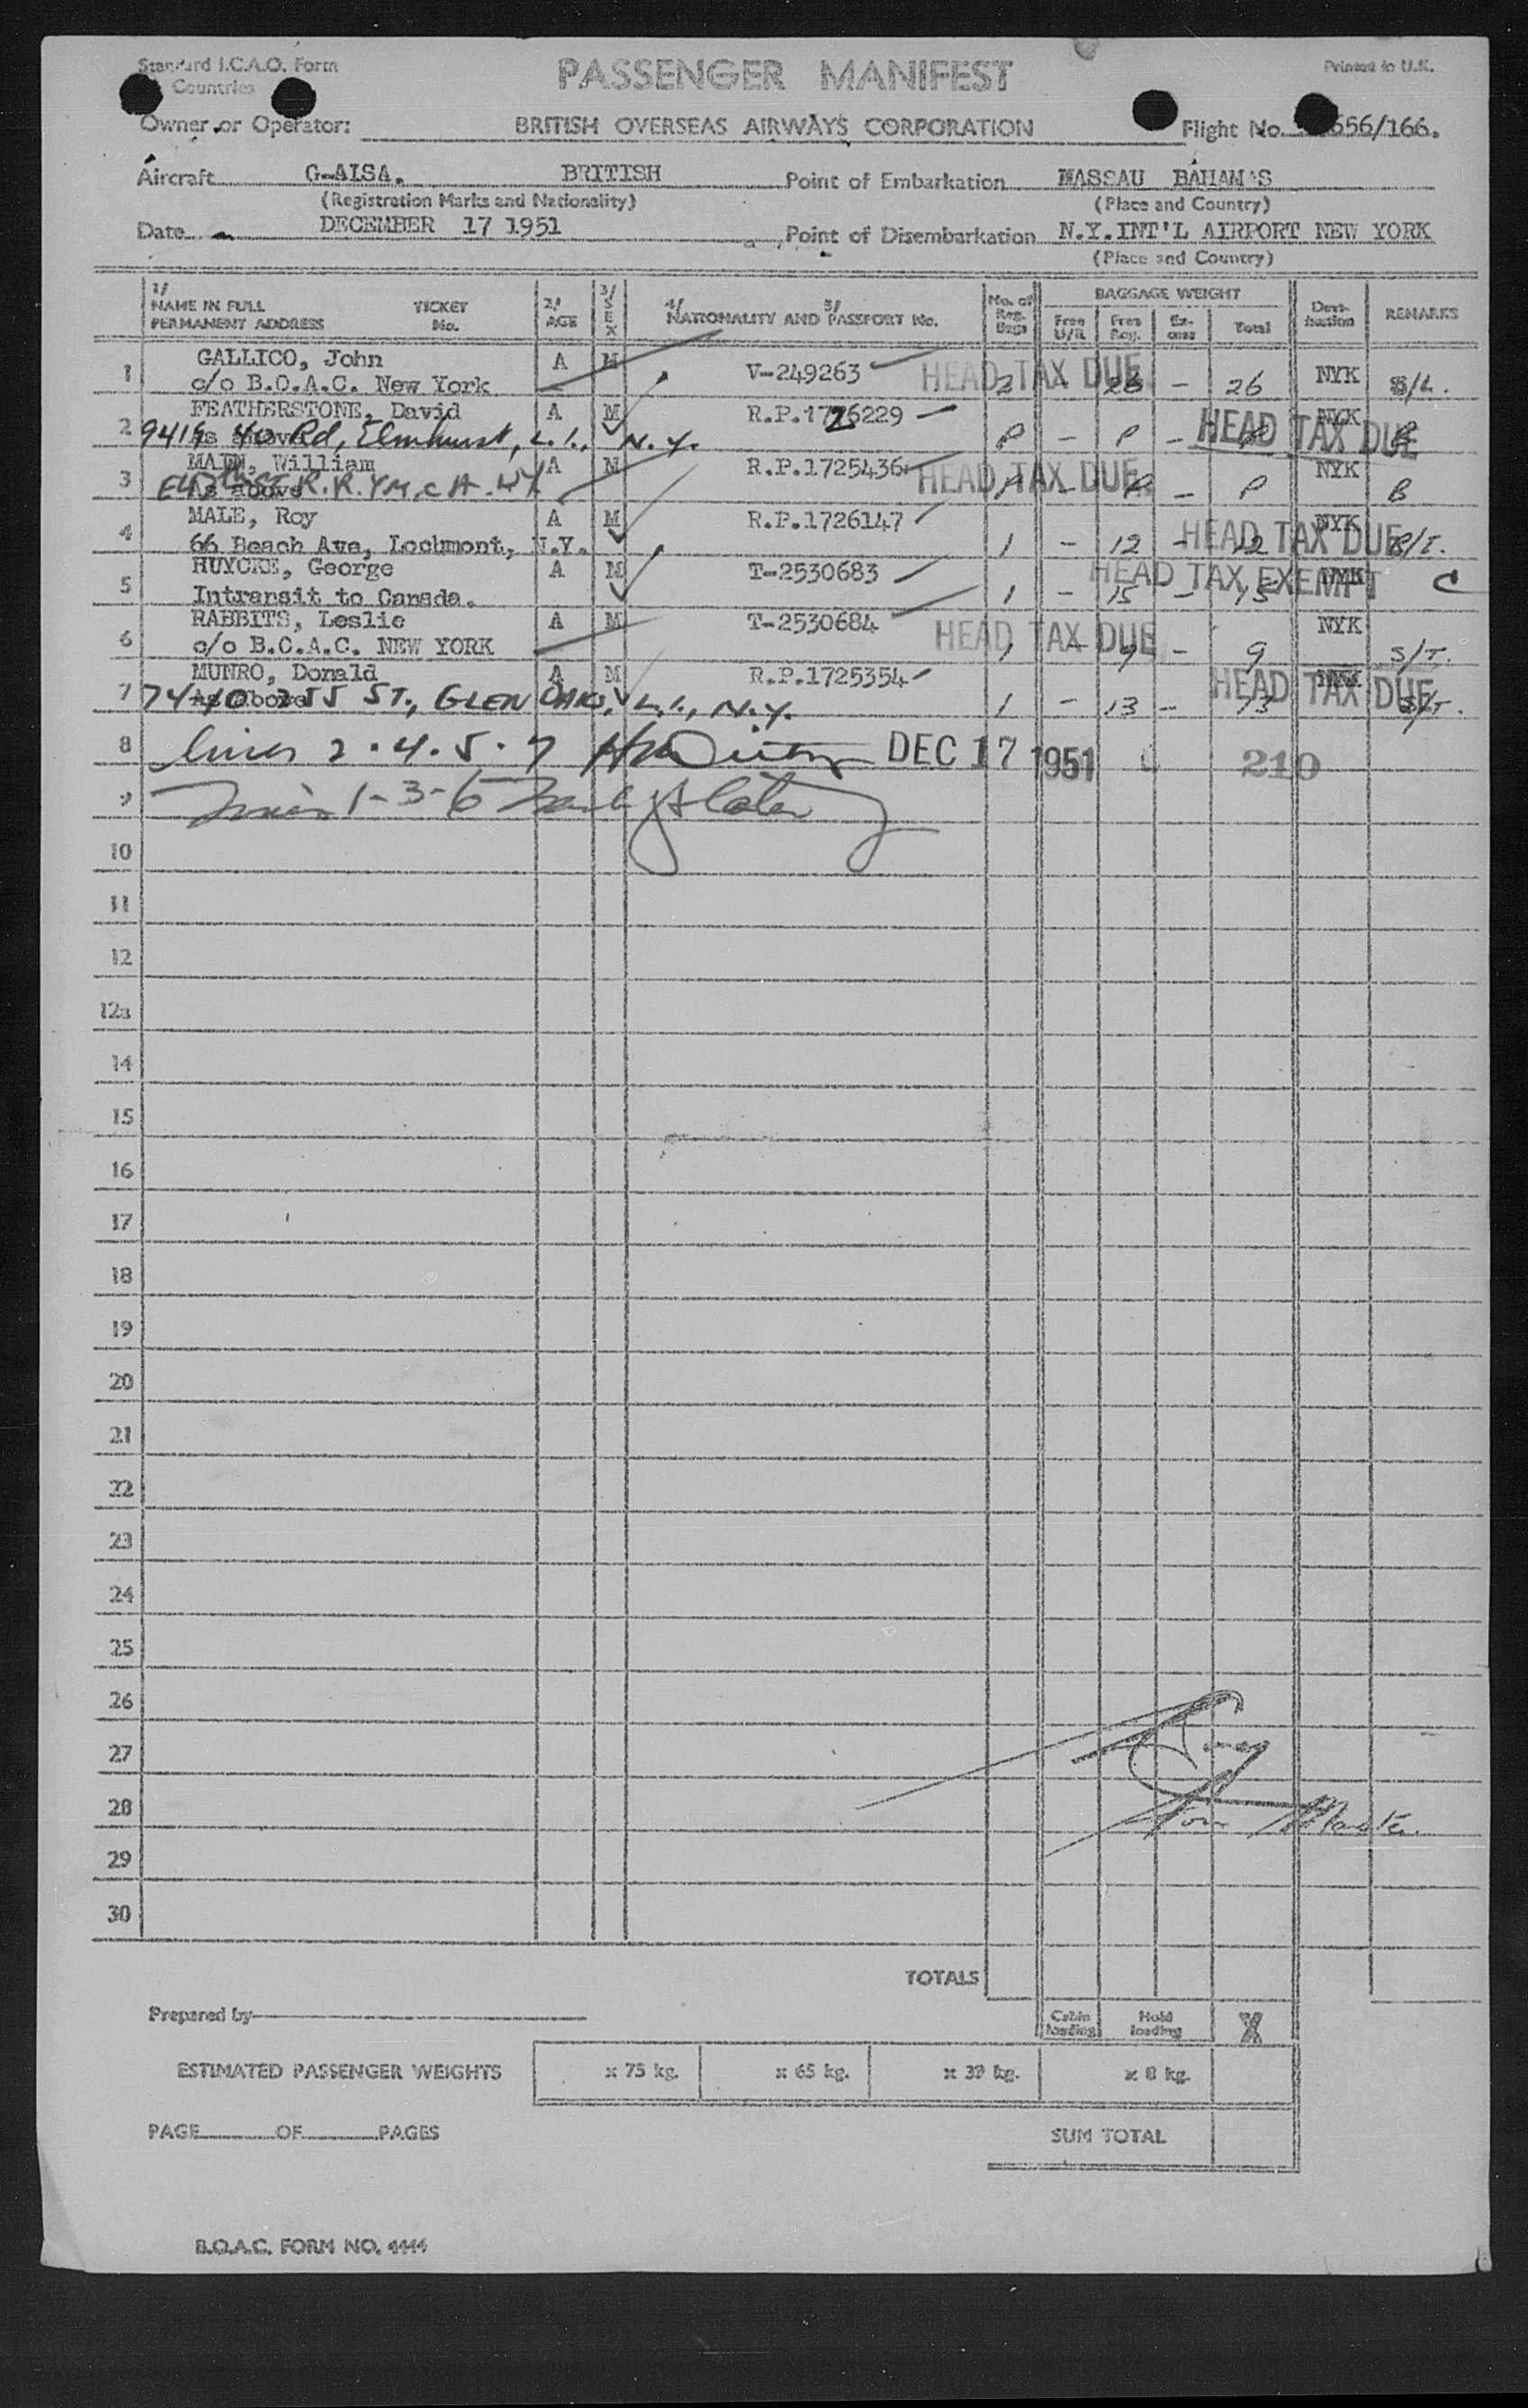 Standard I.C.A.O. Form
Countries
PASSENGER MANIFEST
Printed in U.K.
Owner or Operator: BRITISH OVERSEAS AIRWAYS CORPORATION Flight No. 656/166.
Aircraft G-AISA. BRITISH Point of Embarkation NASSAU BAHAMAS
(Registration Marks and Nationality) (Place and Country)
Date DECEMBER 17 1951 Point of Disembarkation N.Y.INT'L AIRPORT NEW YORK
(Place and Country)
1/ NAME IN FULL PERMANENT ADDRESS TICKET No. 2/ AGE 3/ SEX 4/ 5/ NATIONALITY AND PASSPORT No. No. of Reg. Bags BAGGAGE WEIGHT Free U/R Free Reg. Ex-cess Total Dest-ination REMARKS
1 GALLICO, John A M V-249263 HEAD TAX DUE 2 26 - 26 NYK S/L.
c/o B.O.A.C. New York
2 FEATHERSTONE, David A M R.P.1726229 P - P - HEAD TAX DUE NYK B
As above 9419 40 Rd, Elmhurst, L.I., N.Y.
3 MAIN, William A M R.P.1725436 HEAD TAX DUE P - P - P NYK B
As above R.R. YMCA NY
4 MALE, Roy A M R.P.1726147 1 - 12 - 12 HEAD TAX DUE NYK S/T.
66 Beach Ave, Lochmont, N.Y.
5 HUYCKE, George A M T-2530683 1 - 15 - 15 HEAD TAX EXEMPT NYK C
Intransit to Canada.
6 RABBITS, Leslie A M T-2530684 HEAD TAX DUE 1 9 - 9 NYK S/T.
c/o B.O.A.C. NEW YORK
7 MUNRO, Donald A M R.P.1725354 1 - 13 - 13 HEAD TAX DUE NYK S/T.
As above 7440 255 ST., GLEN OAKS, L.I., N.Y.
8 Lines 2.4.5.7 DEC 17 1951 210
9 Lines 1-3-6
10
11
12
12a
14
15
16
17
18
19
20
21
22
23
24
25
26
27
28 for Master.
29
30
TOTALS
Prepared by
Cabin loading Hold loading X
ESTIMATED PASSENGER WEIGHTS x 75 kg. x 65 kg. x 39 kg. x 8 kg.
PAGE OF PAGES SUM TOTAL
B.O.A.C. FORM NO. 4444